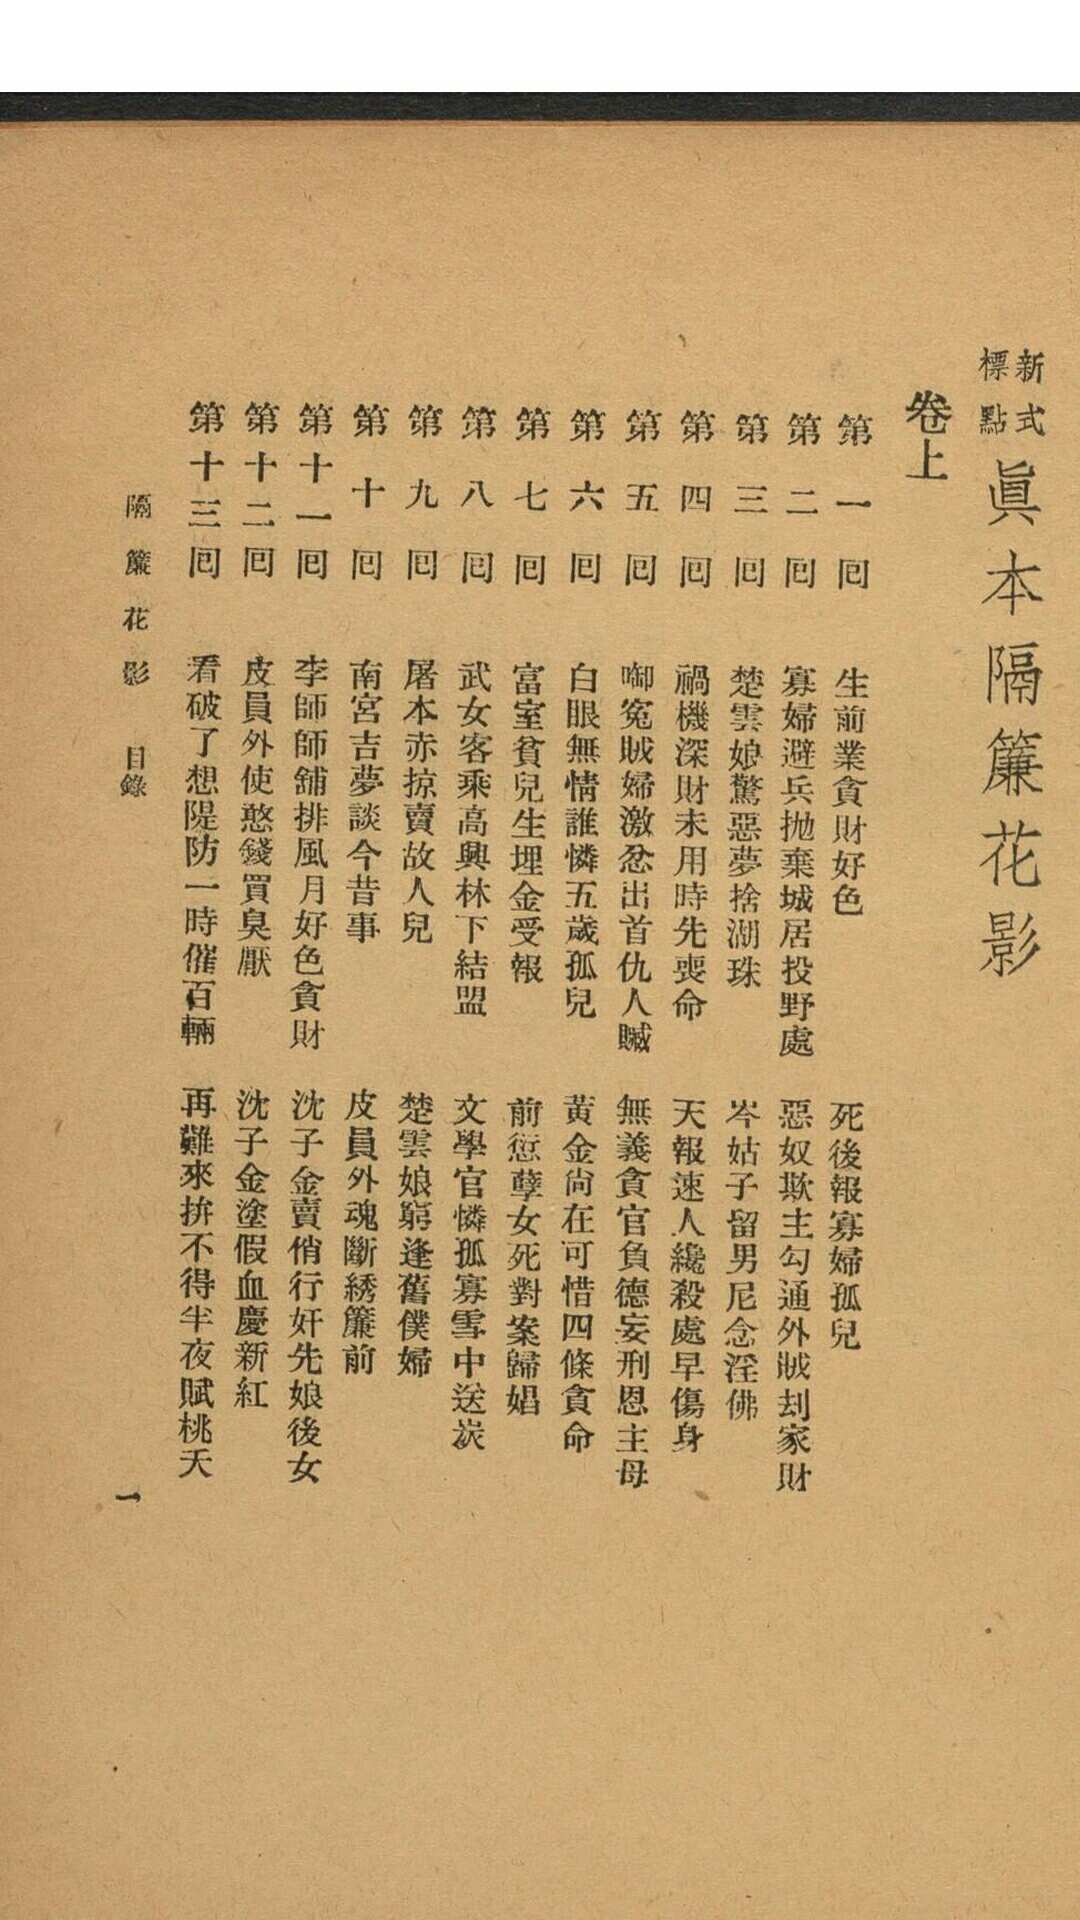 新式標點 眞本隔簾花影
卷上
第一回 生前業貪財好色 死後報寡婦孤兒
第二回 寡婦避兵拋棄城居投野處 惡奴欺主勾通外賊刦家財
第三回 楚雲娘驚惡夢捨湖珠 岑姑子留男尼念淫佛
第四回 禍機深財未用時先喪命 天報速人纔殺處早傷身
第五回 啣冤賊婦激忿出首仇人贓 無義貪官負德妄刑恩主母
第六回 白眼無情誰憐五歲孤兒 黃金尙在可惜四條貪命
第七回 富室貧兒生埋金受報 前愆孽女死對案歸娼
第八回 武女客乘高興林下結盟 文學官憐孤寡雪中送炭
第九回 屠本赤掠賣故人兒 楚雲娘窮逢舊僕婦
第十回 南宮吉夢談今昔事 皮員外魂斷綉簾前
第十一回 李師師舖排風月好色貪財 沈子金賣俏行奸先娘後女
第十二回 皮員外使憨錢買臭厭 沈子金塗假血慶新紅
第十三回 看破了想隄防一時催百輛 再難來拚不得半夜賦桃夭
隔簾花影 目錄 一